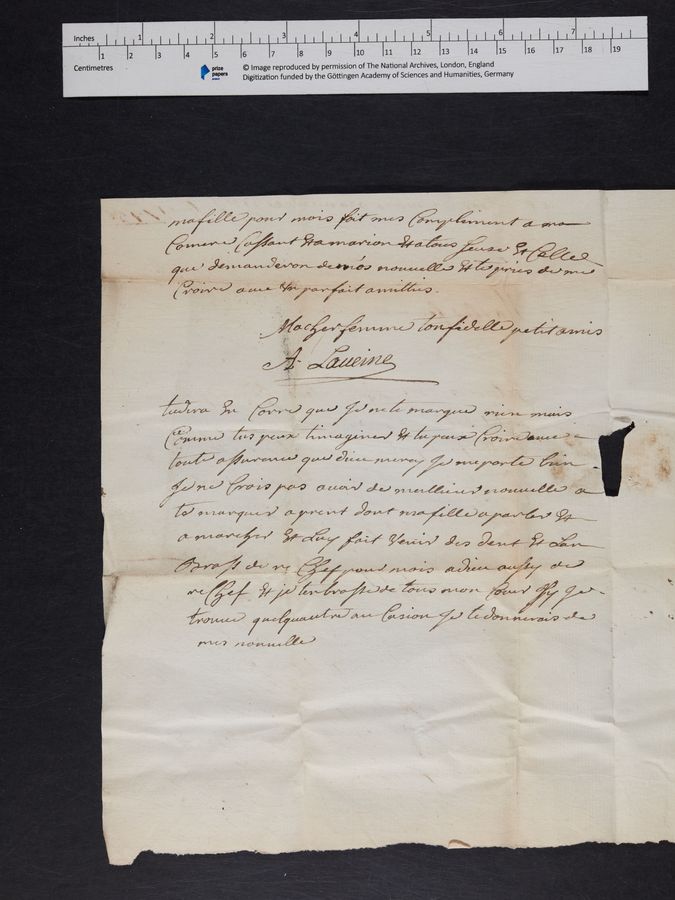 Inches 1 2 3 4 5 6 7
1 2 3 4 5 6 7 8 9 10 11 12 13 14 15 16 17 18 19
Centimetres
prize papers
© Image reproduced by permission of The National Archives, London, England
Digitization funded by the Göttingen Academy of Sciences and Humanities, Germany
mafille pour mois fait mes Compliment a ma
Comere Et a marion Et a tous Ceuse Et Celle
que demanderon de mos nouvelle Et te pries de me
Croire avec Un parfait amitties
Macher femme ton fidelle petit amis
A. Laveine
tudira En Corre que Je ne te marque rien mais
Comme tus peux timaginer Et tu peux Croire avec
toute assurance que dieu mersy Je me porte bien
Je ne Crois pas avoir de meillieur nouvelle a
te marquer aprent dont mafille aparler Et
a marcher Et Luy fait Venir des dent Et Lan
Brasse de re Chef pour mois adieu ausy de
re Chef Et je tenbrasse de tous mon Cour Sy Je
trouve quelquautre au Casion Je te donnerais de
mes nouvelle